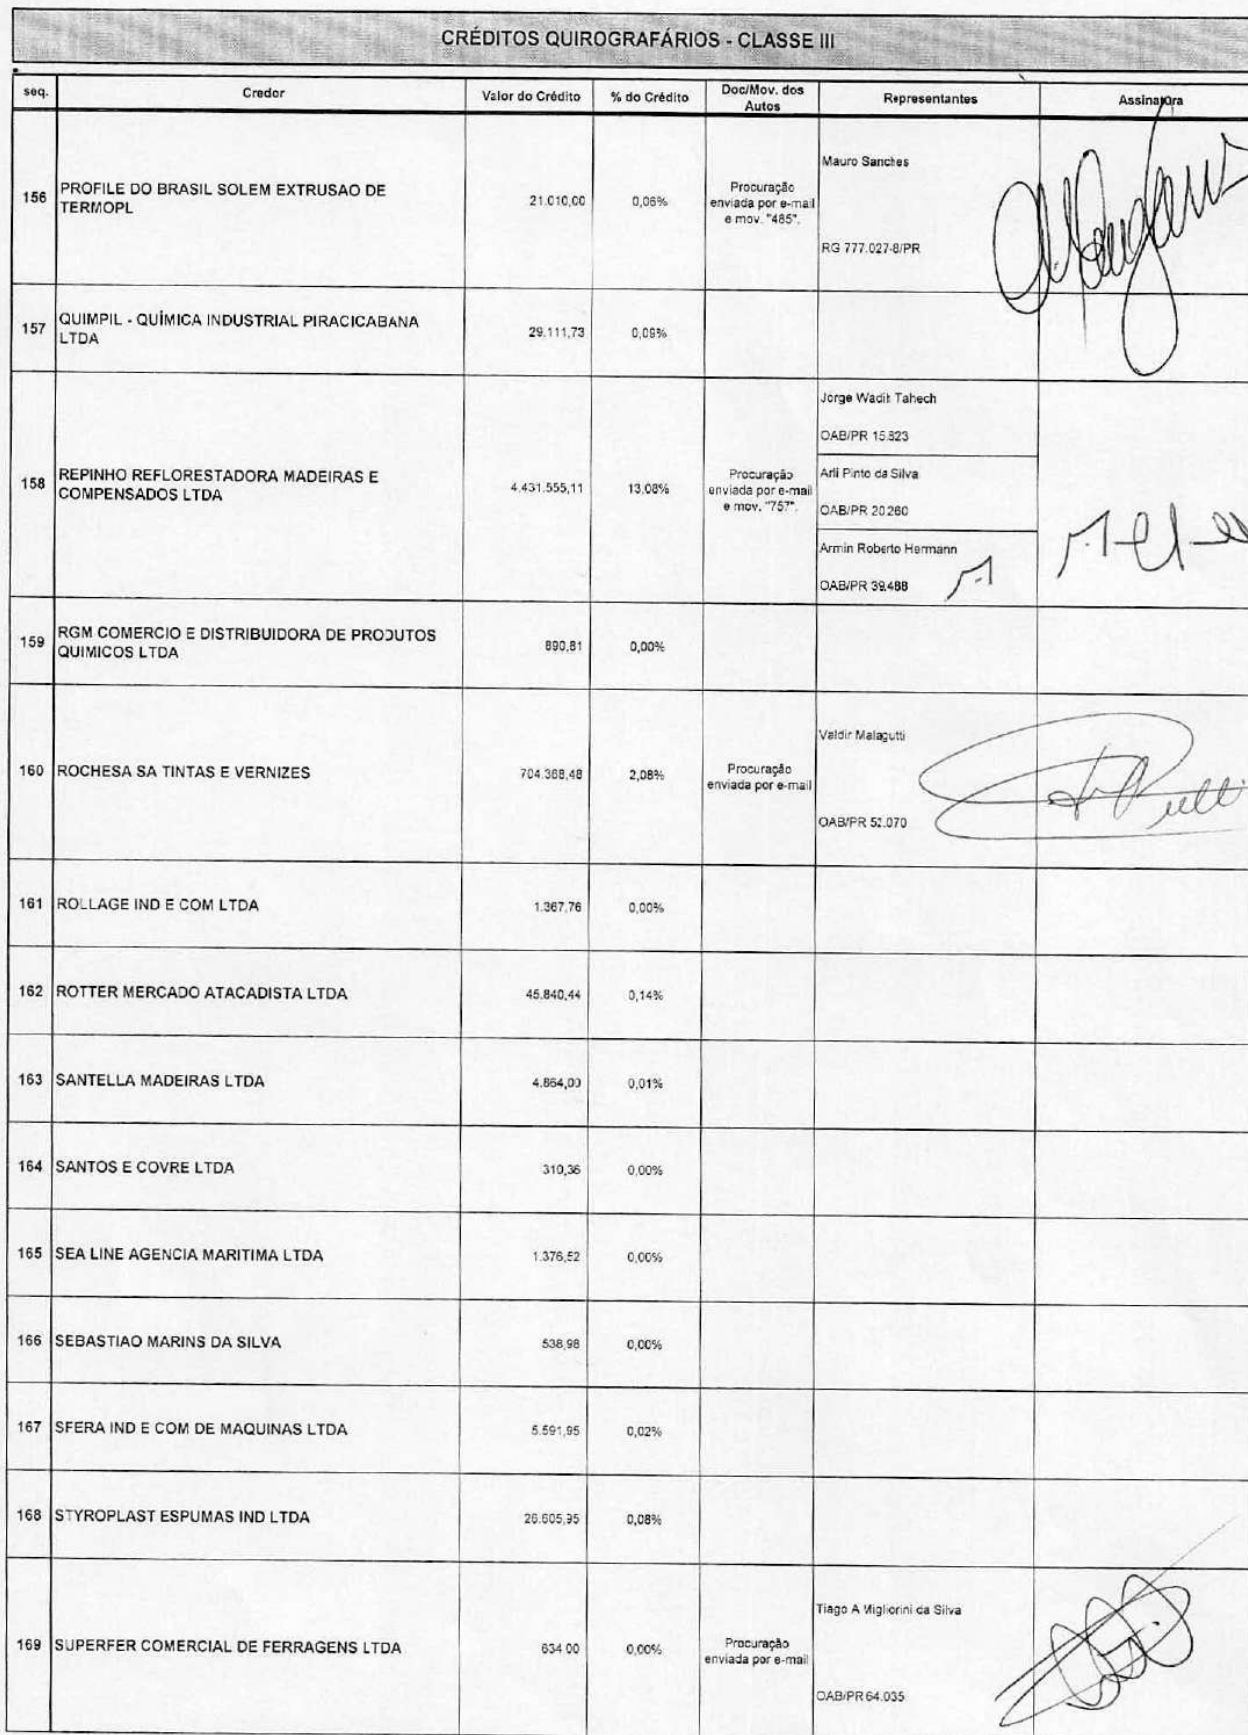 CRÉDITOS QUIROGRAFÁRIOS - CLASSE III
seq. Credor Valor do Crédito % do Crédito Doc/Mov. dos Autos Representantes Assinatura
156 PROFILE DO BRASIL SOLEM EXTRUSAO DE
TERMOPL
21.010,00 0,06%
Procuração
enviada por e-mail
e mov. "485".
Mauro Sanches
RG 777.027-8/PR
157 QUIMPIL - QUÍMICA INDUSTRIAL PIRACICABANA
LTDA
29.111,73 0,09%
158 REPINHO REFLORESTADORA MADEIRAS E
COMPENSADOS LTDA
4.431.555,11 13,08%
Procuração
enviada por e-mail
e mov. "757".
Jorge Wadih Tahech
OAB/PR 15.823
Arli Pinto da Silva
OAB/PR 20.260
Armin Roberto Hermann
OAB/PR 39.488
159 RGM COMERCIO E DISTRIBUIDORA DE PRODUTOS
QUIMICOS LTDA
890,81 0,00%
160 ROCHESA SA TINTAS E VERNIZES 704.368,48 2,08%
Procuração
enviada por e-mail
Valdir Malagutti
OAB/PR 52.070
161 ROLLAGE IND E COM LTDA 1.367,76 0,00%
162 ROTTER MERCADO ATACADISTA LTDA 45.840,44 0,14%
163 SANTELLA MADEIRAS LTDA 4.864,00 0,01%
164 SANTOS E COVRE LTDA 310,36 0,00%
165 SEA LINE AGENCIA MARITIMA LTDA 1.376,52 0,00%
166 SEBASTIAO MARINS DA SILVA 538,98 0,00%
167 SFERA IND E COM DE MAQUINAS LTDA 5.591,95 0,02%
168 STYROPLAST ESPUMAS IND LTDA 26.605,95 0,08%
169 SUPERFER COMERCIAL DE FERRAGENS LTDA 634,00 0,00%
Procuração
enviada por e-mail
Tiago A Migliorini da Silva
OAB/PR 64.035